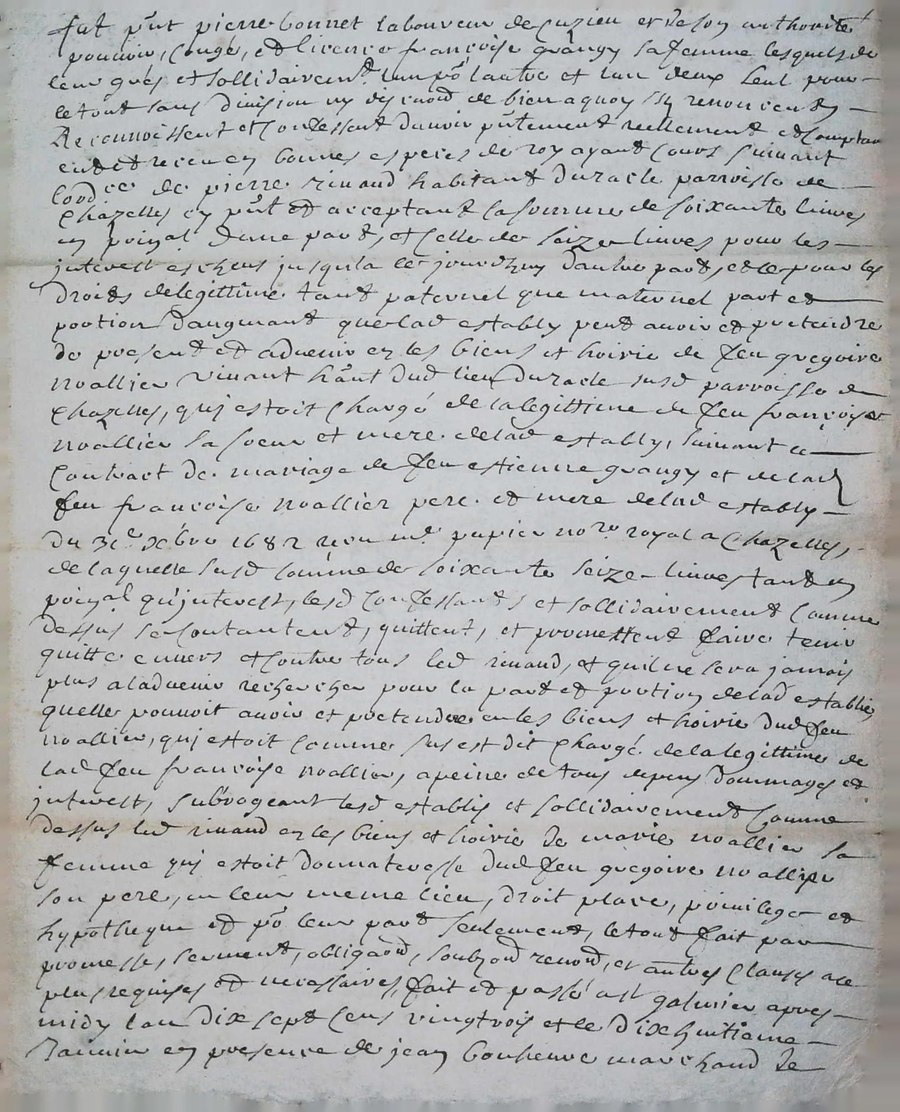 fut pnt pierre bonnet laboureur de cuzieu et de son authorité
pouvoir, congé, et licence françoise grangy sa femme lesquels de
leur grés et sollidairemt lun po lautre et lun deux seul pour
le tout sans division ny discuon de bien a quoy ils renoncent
Reconnoissent et confessent davoir pntement reellement et comptant
eu et receu en bonnes especes de roy ayant cours suivant
lordce de pierre rinaud habitant duracle parroisse de
Chazelles cy pnt et acceptant la somme de soixante livres
en prinpal dune part, et celle de seize livres pour les
interest escheus jusqu'a ce jourdhuy dautre part, et ce pour les
droits de legittime tant paternel que maternel part et
portion daugmant que lad establÿ peut avoir et pretendre
de present et advenir ez les biens et hoirie de feu gregoire
noallier vivant hant dud lieu duracle susd parroisse de
Chazelles, qui estoit chargé de la legittime de feu françoise
noallier sa soeur et mere de lad establÿ, suivant le
contract de mariage de feu estienne grangy et de lad
feu françoise noallier pere et mere de lad establÿ
du 31e xbre 1682 receu me papier nore royal a Chazelles,
de laquelle susd somme de soixante seize livres tant en
prinpal qu'interest, lesd confessants et sollidairement comme
dessus se contantent, quittent, et promettent faire tenir
quitte envers et contre tous led rinaud, et quil ne sera jamais
plus a ladvenir rechercher pour la part et portion de lad establie
quelle pouvoit avoir et pretendre en les biens et hoirie dud feu
noallier, qui estoit comme sus est dit chargé de la legittime de
lad feu françoise noallier, a peine de tous depens dommages et
interest, subrogeant lesd establis et sollidairement comme
dessus led rinaud ez les biens et hoirie de marie noallier sa
femme qui estoit donnateresse dud feu gregoire noallier
son pere, en leur meme lieu, droit place, privilege et
hypotheque et po leur part seulement, le tout fait par
promesse, serment, obligaon, soubzon renon, et autres clauses a ce
plus requises et necessaires, fait et passé a st galmier apres
midy lan dix sept cens vingtrois et le dix huitieme
Janvier en presence de jean bonheure marchand de